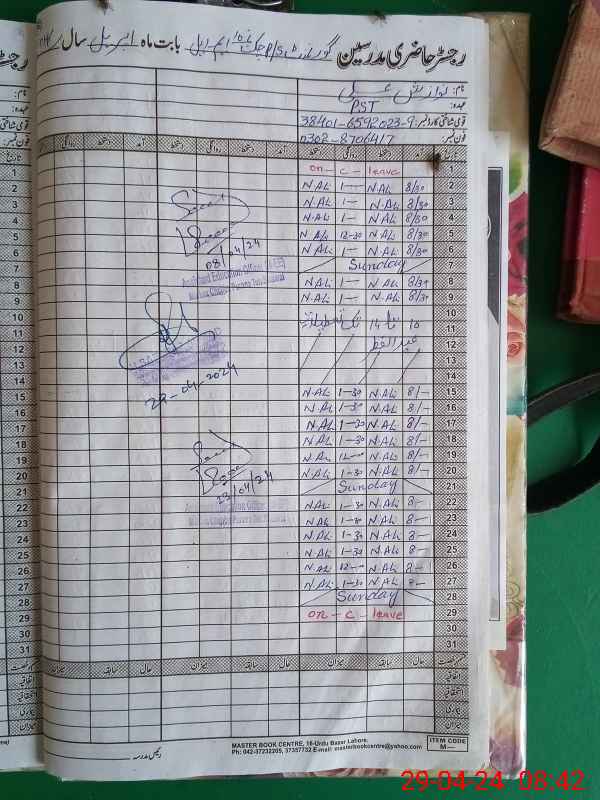 رجسٹر حاضری مدرسین گورنمنٹ P/S چک بابت ماہ اپریل سال
نام: نوازش علی
عہدہ: PST
قومی شناختی کارڈ نمبر: 38401-6592023-9
فون نمبر: 0302-8706417
تاریخ آمد دستخط روانگی دستخط آمد دستخط روانگی دستخط
1 on - C - leave
2 8/30 N.AL 1— N.AL
3 8/30 N.AL 1— N.AL
4 8/30 N.AL 1— N.AL
5 8/30 N.AL 12-30 N.AL
6 8/30 N.AL 1— N.AL
7 Sunday
8 8/30 N.AL 1— N.AL
9 8/30 N.AL 1— N.AL
10
11 10 تا 14 تک
12 عید الفطر
13
14
15 8/— N.AL 1-30 N.AL
16 8/— N.AL 1-30 N.AL
17 8/— N.AL 1-30 N.AL
18 8/— N.AL 1-30 N.AL
19 8/— N.AL 12— N.AL
20 8/— N.AL 1-30 N.AL
21 Sunday
22 8— N.AL 1-30 N.AL
23 8— N.AL 1-30 N.AL
24 8— N.AL 1-30 N.AL
25 8— N.AL 1-30 N.AL
26 8— N.AL 12— N.AL
27 8— N.AL 1-30 N.AL
28 Sunday
29 on - C - leave
30
31
08/04/24
Assistant Education Officer
29-04-2024
23/04/24
حال سابقہ میزان حال سابقہ میزان
اتفاقیہ
استحقاقیہ
بیماری
میزان
رئیس مدرسہ
MASTER BOOK CENTRE, 16-Urdu Bazar Lahore.
Ph: 042-37232205, 37357732 E-mail: masterbookcentre@yahoo.com
ITEM CODE
M—
29-04-24 08:42